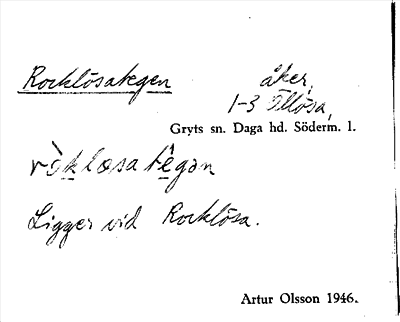 Rocklösategen åker,
1-3 Tllösa,
Gryts sn. Daga hd. Söderm. l.
ròklosa tègən
Ligger vid Rocklösa.
Artur Olsson 1946.